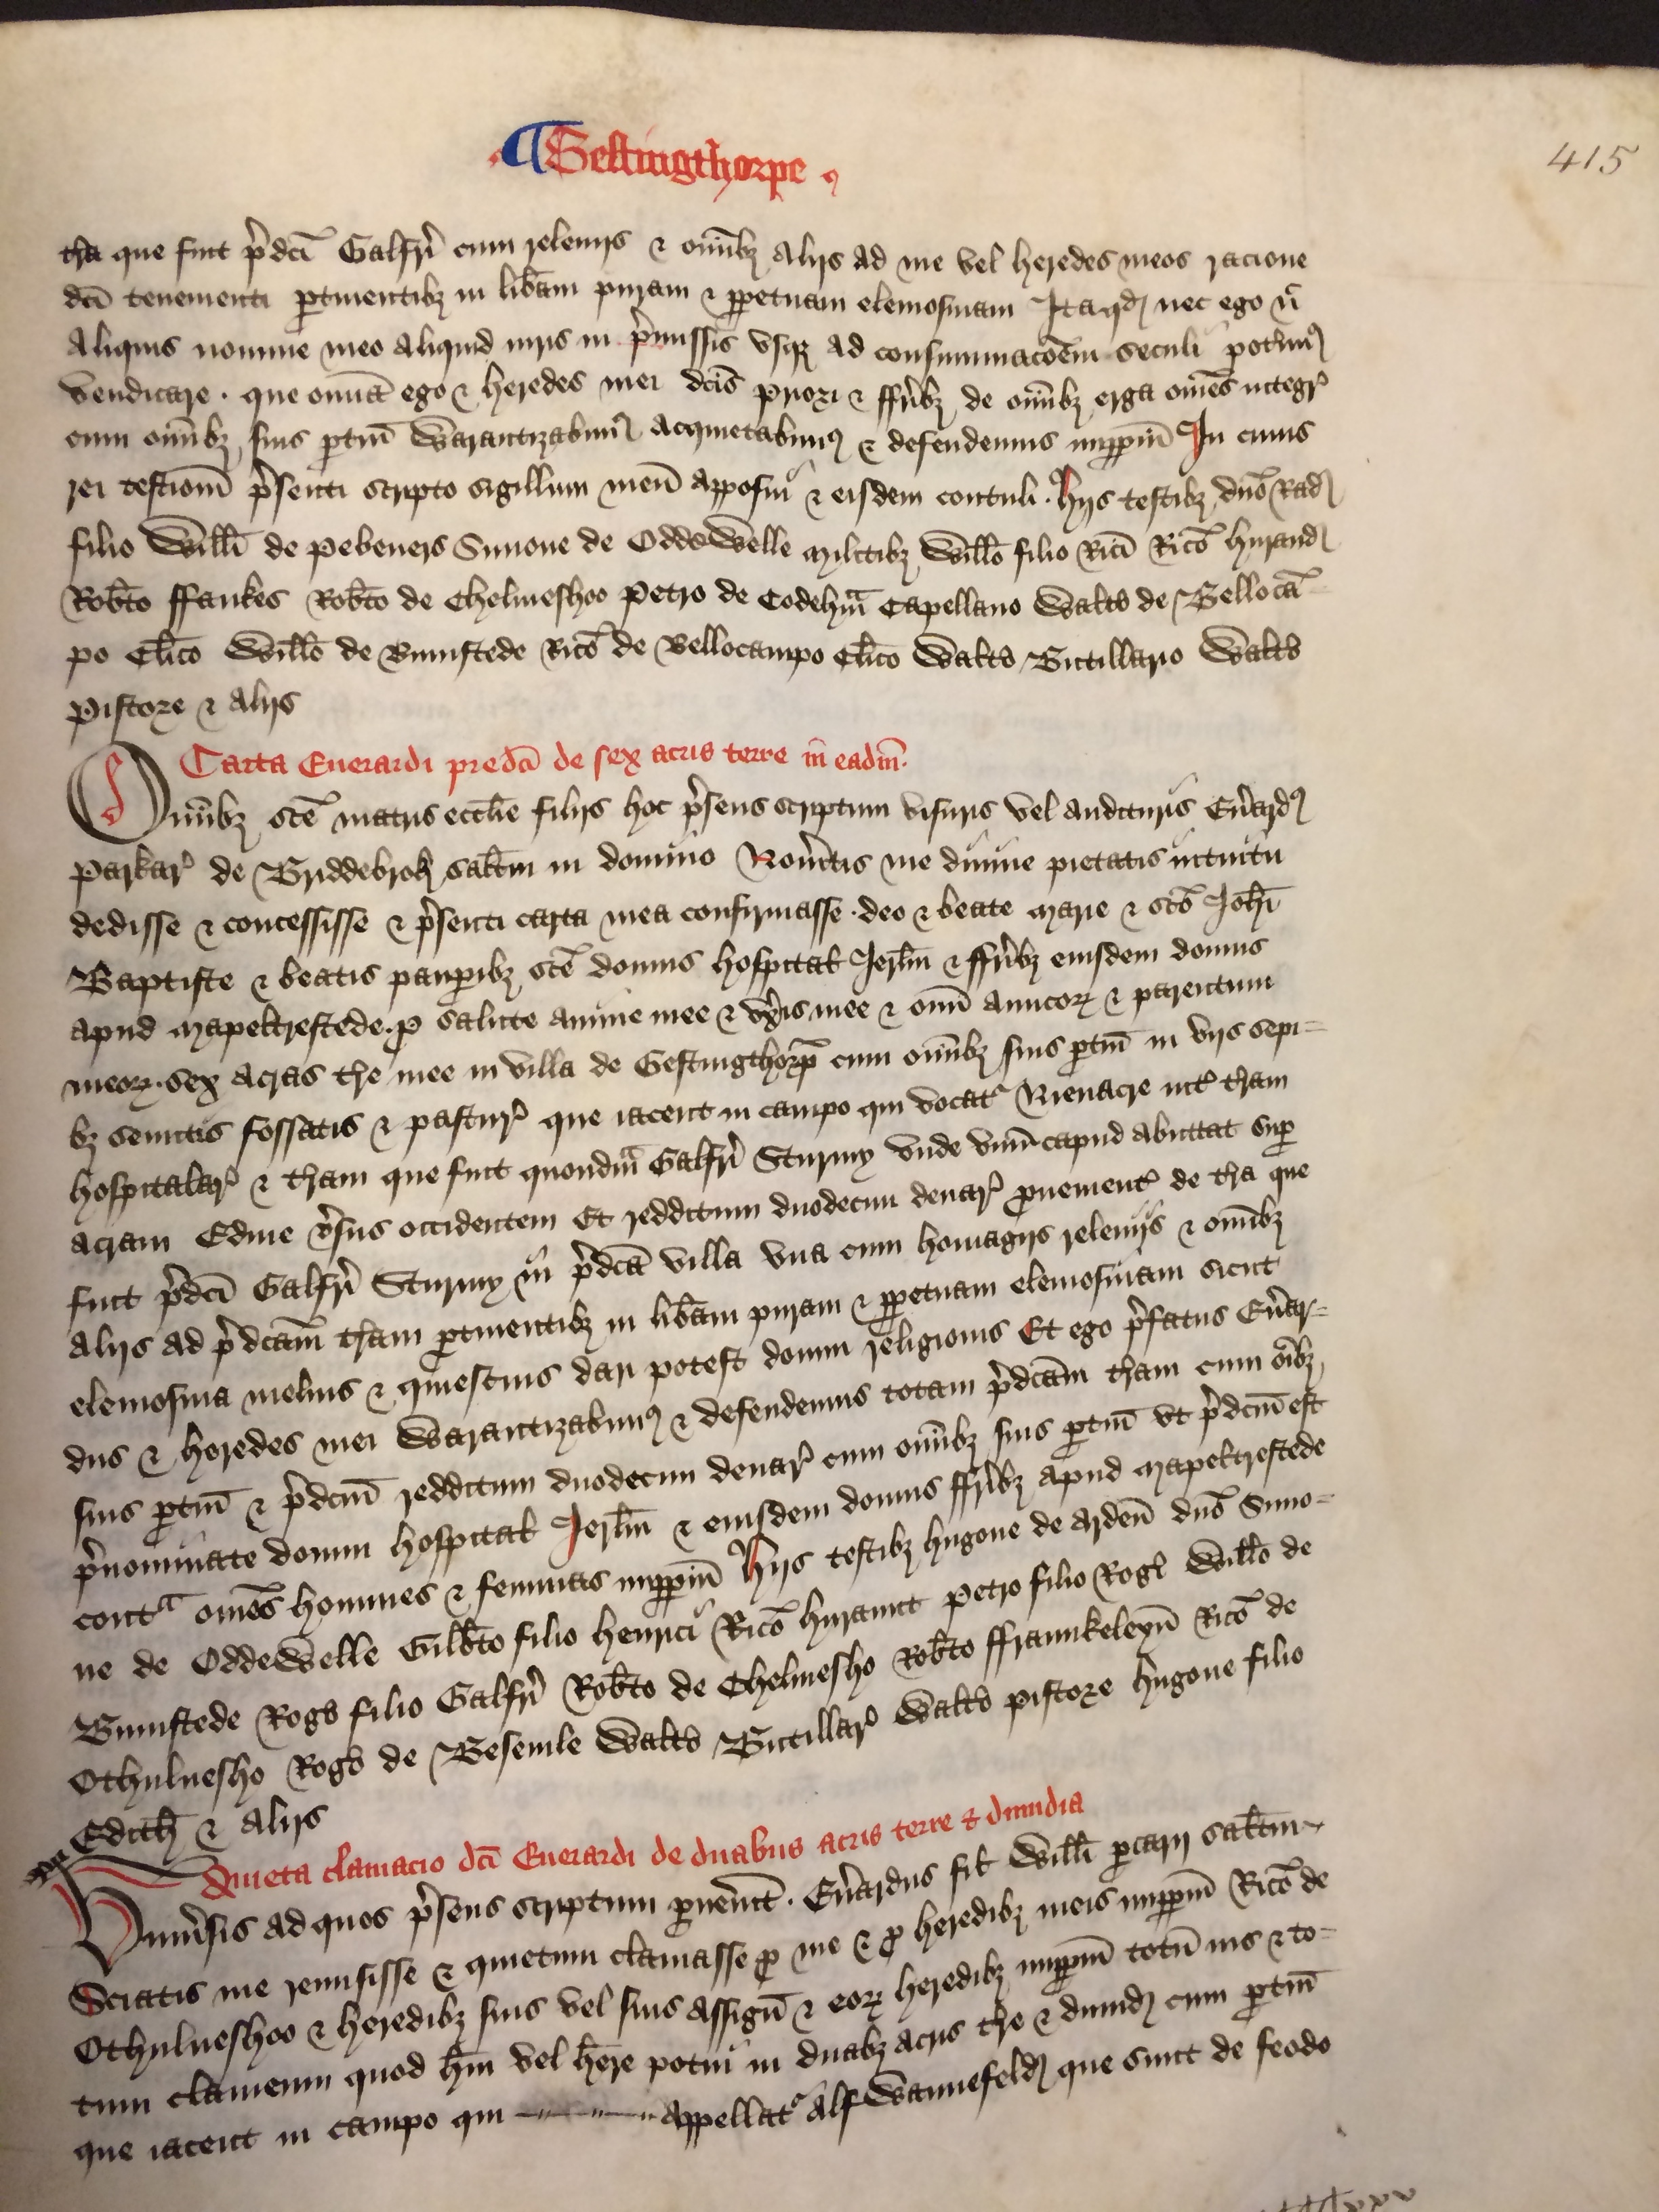 ¶ Gestingthorpe
415
tr̄a que fuit p̄dc̄i Galfr̄i cum releuijs & om̄ibȝ alijs ad me vel heredes meos racione
dc̄i tenementi ꝑtinentibȝ in lib̄am puram & ꝑpetuam elemosinam Ita qd̄ nec ego n̄
Aliquis nomine meo aliquid iuris in p̄missis vsqȝ ad consummacōem seculi pot̄imꝰ
vendicare . que om̄ia ego & heredes mei dc̄is priori & ffr̄ibȝ de om̄ibȝ erga om̄es integr̄
cum om̄ibȝ suis ꝑtin̄ Warantizabimꝰ acquietabimꝰ & defendemus imꝑpm̄ In cuius
rei testiom̄ p̄senti scripto sigillum meū apposui & eisdem contuli . hijs testibȝ dn̄o Rad̄
filio Willi̅ de Pebeners Simone de Oddewelle militibȝ Willo̅ filio Ric̄i Ric̄o hurand̄
Rob̄to ffankes Rob̄to de Chelmeshoo Petro de Codehm̄ Capellano Walt̄o de Bellocā
po Cl̄ico Willo̅ de Bumstede Ric̄o de Bellocampo Cl̄ico Walt̄o Butillario Walt̄o
Pistore & alijs
Carta Euerardi predc̄i de sex acris terre in eadm̄.
Om̄ibȝ sc̄e matris eccl̄ie filijs hoc p̄sens scriptum visuris vel audituris Eu̅ardꝰ
Parkar̄ de Briddebrok salt̄m in domino Nou̅itis me diuine pietatis intuitu
dedisse & concessisse & p̄senti carta mea confirmasse . deo & beate marie & sc̄o Joh̄i
Baptiste & beatis pauꝑibȝ sc̄e domus hospital̄ Jerl̄m & ffr̄ibȝ eiusdem domus
apud Mapeltrestede . ꝓ salute anime mee & vx̄is mee & om̄i amicorꝝ & parentum
meorꝝ . sex acras tr̄e mee in villa de Gestingthorp̄ cum om̄ibȝ suis ꝑtin̄ in vijs sepi=
bȝ semitis fossatis & pastur̄ que iacent in campo qui vocat̄ Rienacre int̄ tr̄am
hospitalar̄ & tr̄am que fuit quondm̄ Galfr̄i Sturmy vnde vnū capud abuttat suꝑ
acram Edine v̄sus occidentem Et redditum duodecim denar̄ ꝓuenient̄ de tr̄a que
fuit p̄dc̄i Galfr̄i Sturmy in p̄dc̄a villa vna cum homagijs releuijs & om̄ibȝ
alijs ad p̄dc̄am tr̄am ꝑtinentibȝ in lib̄am puram & ꝑpetuam elemosinam sicut
elemosina melius & quiescius dari potest domui religionis Et ego p̄fatus Eu̅ar=
dus & heredes mei Warantizabimꝰ & defendemus totam p̄dc̄am tr̄am cum oīb̄ȝ
suis ꝑtin̄ & p̄dc̄m redditum duodecim denar̄ cum om̄ibȝ suis ꝑtin̄ vt p̄dc̄m est
p̄nominate domui hospital̄ Jerl̄m & eiusdem domus ffr̄ibȝ apud Mapeltrestede
contᵃ om̄es homines & feminas imꝑpm̄ hijs testibȝ hugone de Arden̄ dn̄o Simo=
ne de Oddewelle Gilb̄to filio henrici Ric̄o huraunt Petro filio Rog̅i Willo̅ de
Bumstede Rog̅o filio Galfr̄i Rob̄to de Chelmesho Rob̄to ffraunkeleyn̄ Ric̄o de
Othulnesho Rog̅o de Beseuile Walt̄o Butillar̄ Walt̄o pistore hugone filio
Edith̄ & alijs
Quieta clamacio dc̄i Euerardi de duabus acris terre & dimidia
Vniu̅sis ad quos p̄sens scriptum ꝑuen̅it . Eu̅ardus fil̄ Willi̅ ꝑcarij salt̄m
Sciatis me remisisse & quietum clamasse ꝓ me & ꝓ heredibȝ meis imꝑpm̄ Ric̄o de
Othulueshoo & heredibȝ suis vel suis assign̄ & eorꝝ heredibȝ imꝑpm̄ totū ius & to=
tum clameum quod h̄ui vel h̄ere potui in duabȝ acris tr̄e & dimid̄ cum ꝑtin̄
que iacent in campo qui appellat̄ Alfwannefeld̄ que sunt de feodo